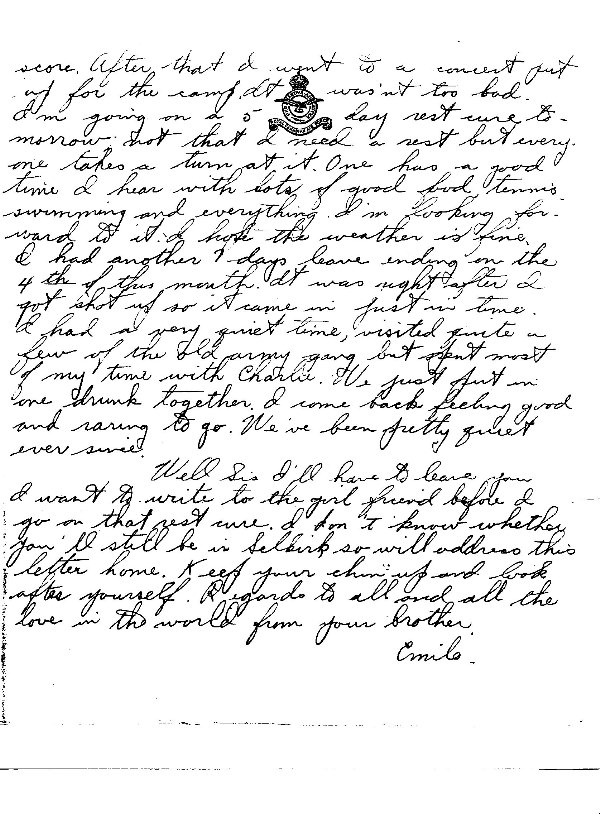 score. After that I went to a concert put
up for the camp. It wasn't too bad.
I'm going on a 5 day rest cure to-
morrow, not that I need a rest but every-
one takes a turn at it. One has a good
time I hear with lots of good food, tennis
swimming and everything. I'm looking for-
ward to it. I hope the weather is fine.
I had another 9 days leave ending on the
4th of this month. It was right after I
got shot up so it came in just in time.
I had a very quiet time, visited quite a
few of the old army gang but spent most
of my time with Charlie. We just put in
one drunk together. I come back feeling good
and raring to go. We've been pretty quiet
ever since.
Well Sis I'll have to leave you
I want to write to the girl friend before I
go on that rest cure. I don't know whether
you'll still be in Selkirk so will address this
letter home. Keep your chin up and look
after yourself. Regards to all and all the
love in the world from your brother.
Emile.